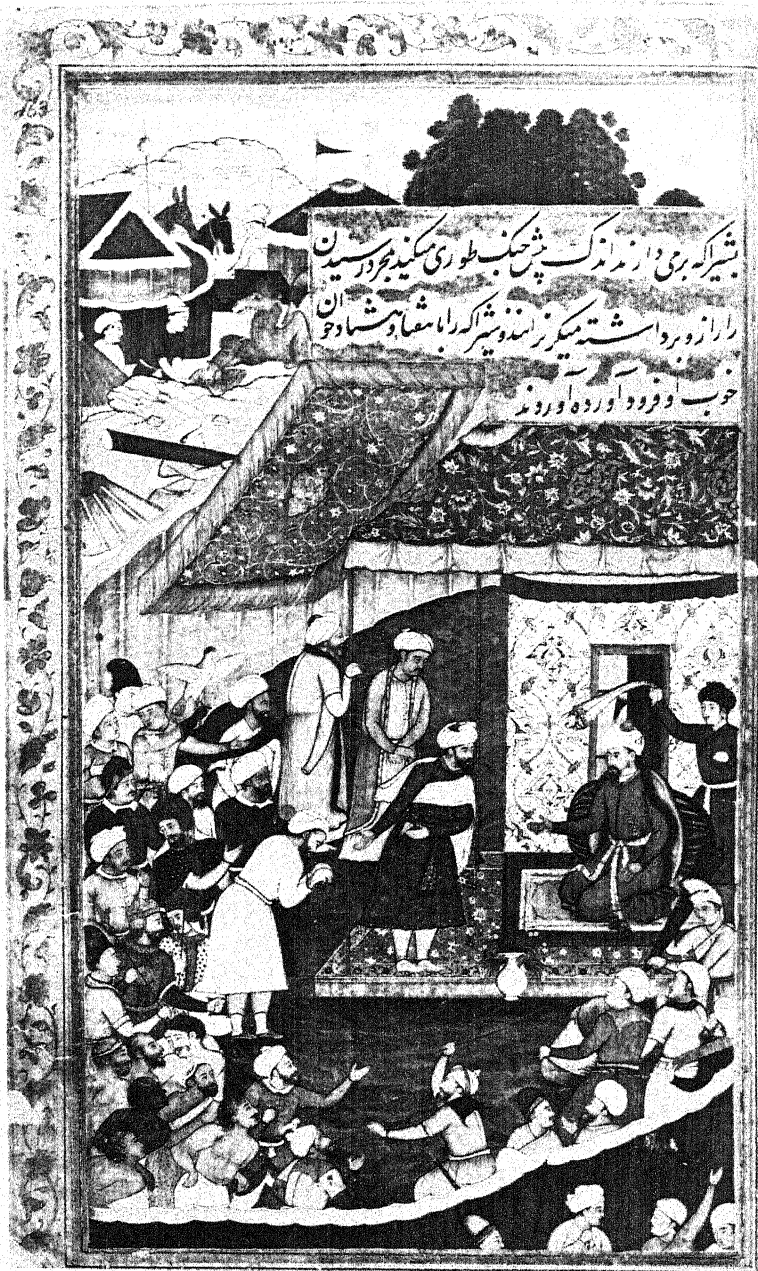 163
بشیراکه برمی دارند اندک پیش جنک طوری میکنید بمجرد رسیدن
را از و برداشته میکریزانند و شیراکه را با هفتاد و هشتاد جوان
خوب او فرود آورده آوردند